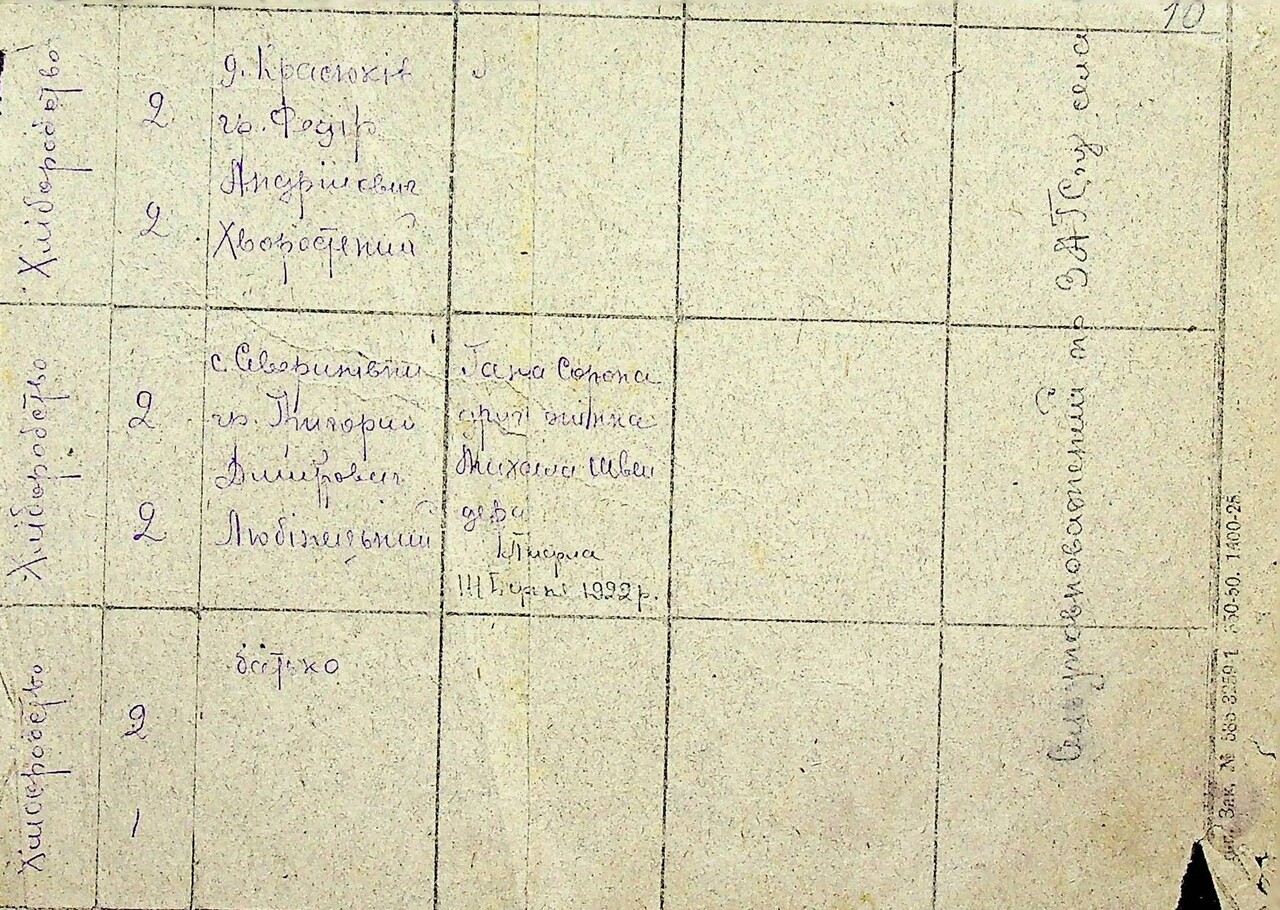 10
Хліборобство
2
2
д. Красюків
гр. Федір
Андрійович
Хворостений
Хліборобство
2
2
с. Северинівки
гр. Григорій
Дмитрович
Любінецький
Гана Сорока
друга жінка
Михаила Швей
дера
Вмерла
1922 р.
Хліборобство
2
1
батько
Сільуповноважений по ЗАГС,у села
Зак. № 586-8259-1 350-50. 1400-28